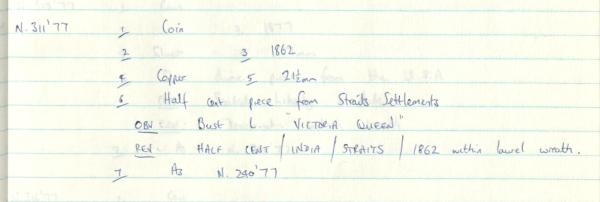 N. 311'77 1 Coin
2 3 1862
4 Copper 5 21½mm
6 Half cent piece from Straits Settlements
OBV Bust L "VICTORIA QUEEN"
REV HALF CENT / INDIA / STRAITS / 1862 within laurel wreath.
7 As N. 290'77